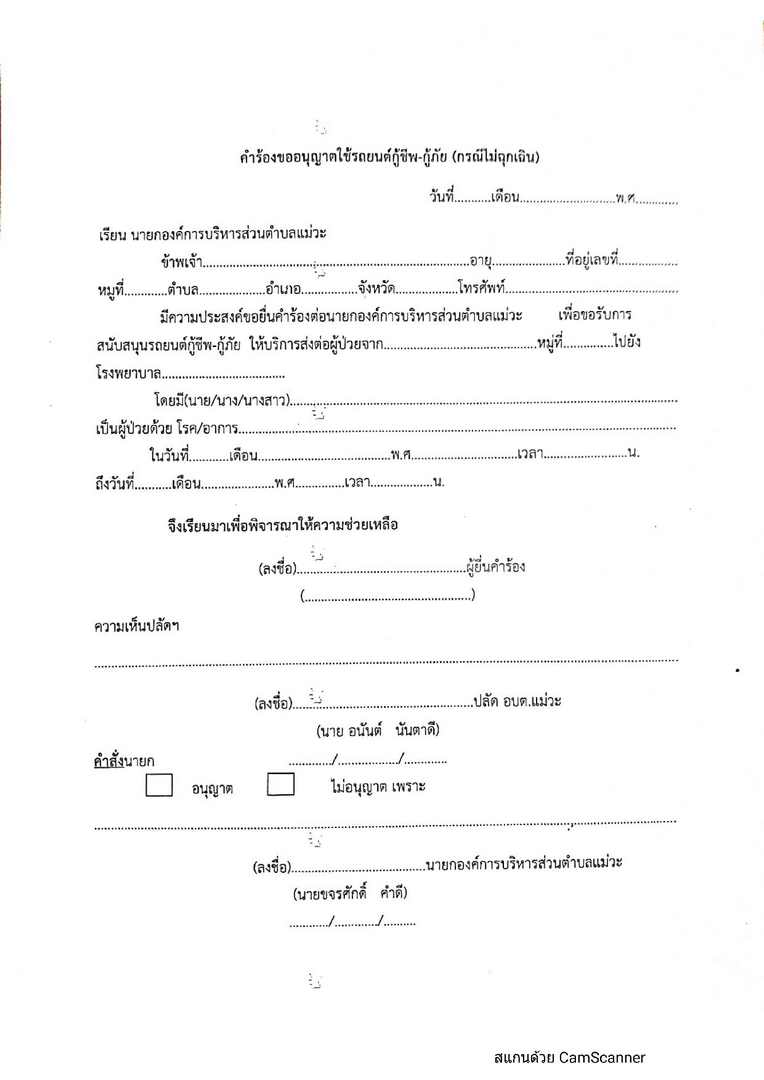 คำร้องขออนุญาตใช้รถยนต์กู้ชีพ-กู้ภัย (กรณีไม่ฉุกเฉิน)
วันที่...........เดือน.............................พ.ศ.............
เรียน นายกองค์การบริหารส่วนตำบลแม่วะ
ข้าพเจ้า................................................................................อายุ......................ที่อยู่เลขที่..................
หมู่ที่.............ตำบล....................อำเภอ.................จังหวัด...................โทรศัพท์....................................................
มีความประสงค์ขอยื่นคำร้องต่อนายกองค์การบริหารส่วนตำบลแม่วะ เพื่อขอรับการ
สนับสนุนรถยนต์กู้ชีพ-กู้ภัย ให้บริการส่งต่อผู้ป่วยจาก..............................................หมู่ที่...............ไปยัง
โรงพยาบาล.....................................
โดยมี(นาย/นาง/นางสาว)....................................................................................................................
เป็นผู้ป่วยด้วย โรค/อาการ...................................................................................................................................
ในวันที่............เดือน........................................พ.ศ................................เวลา.........................น.
ถึงวันที่...........เดือน......................พ.ศ...............เวลา...................น.
จึงเรียนมาเพื่อพิจารณาให้ความช่วยเหลือ
(ลงชื่อ)...................................................ผู้ยื่นคำร้อง
(..................................................)
ความเห็นปลัดฯ
...............................................................................................................................................................................
(ลงชื่อ)......................................................ปลัด อบต.แม่วะ
(นาย อนันต์ นันตาดี)
คำสั่งนายก ............./................../.............
อนุญาต ไม่อนุญาต เพราะ
...............................................................................................................................................................................
(ลงชื่อ)........................................นายกองค์การบริหารส่วนตำบลแม่วะ
(นายขจรศักดิ์ คำดี)
............/............./..........
สแกนด้วย CamScanner